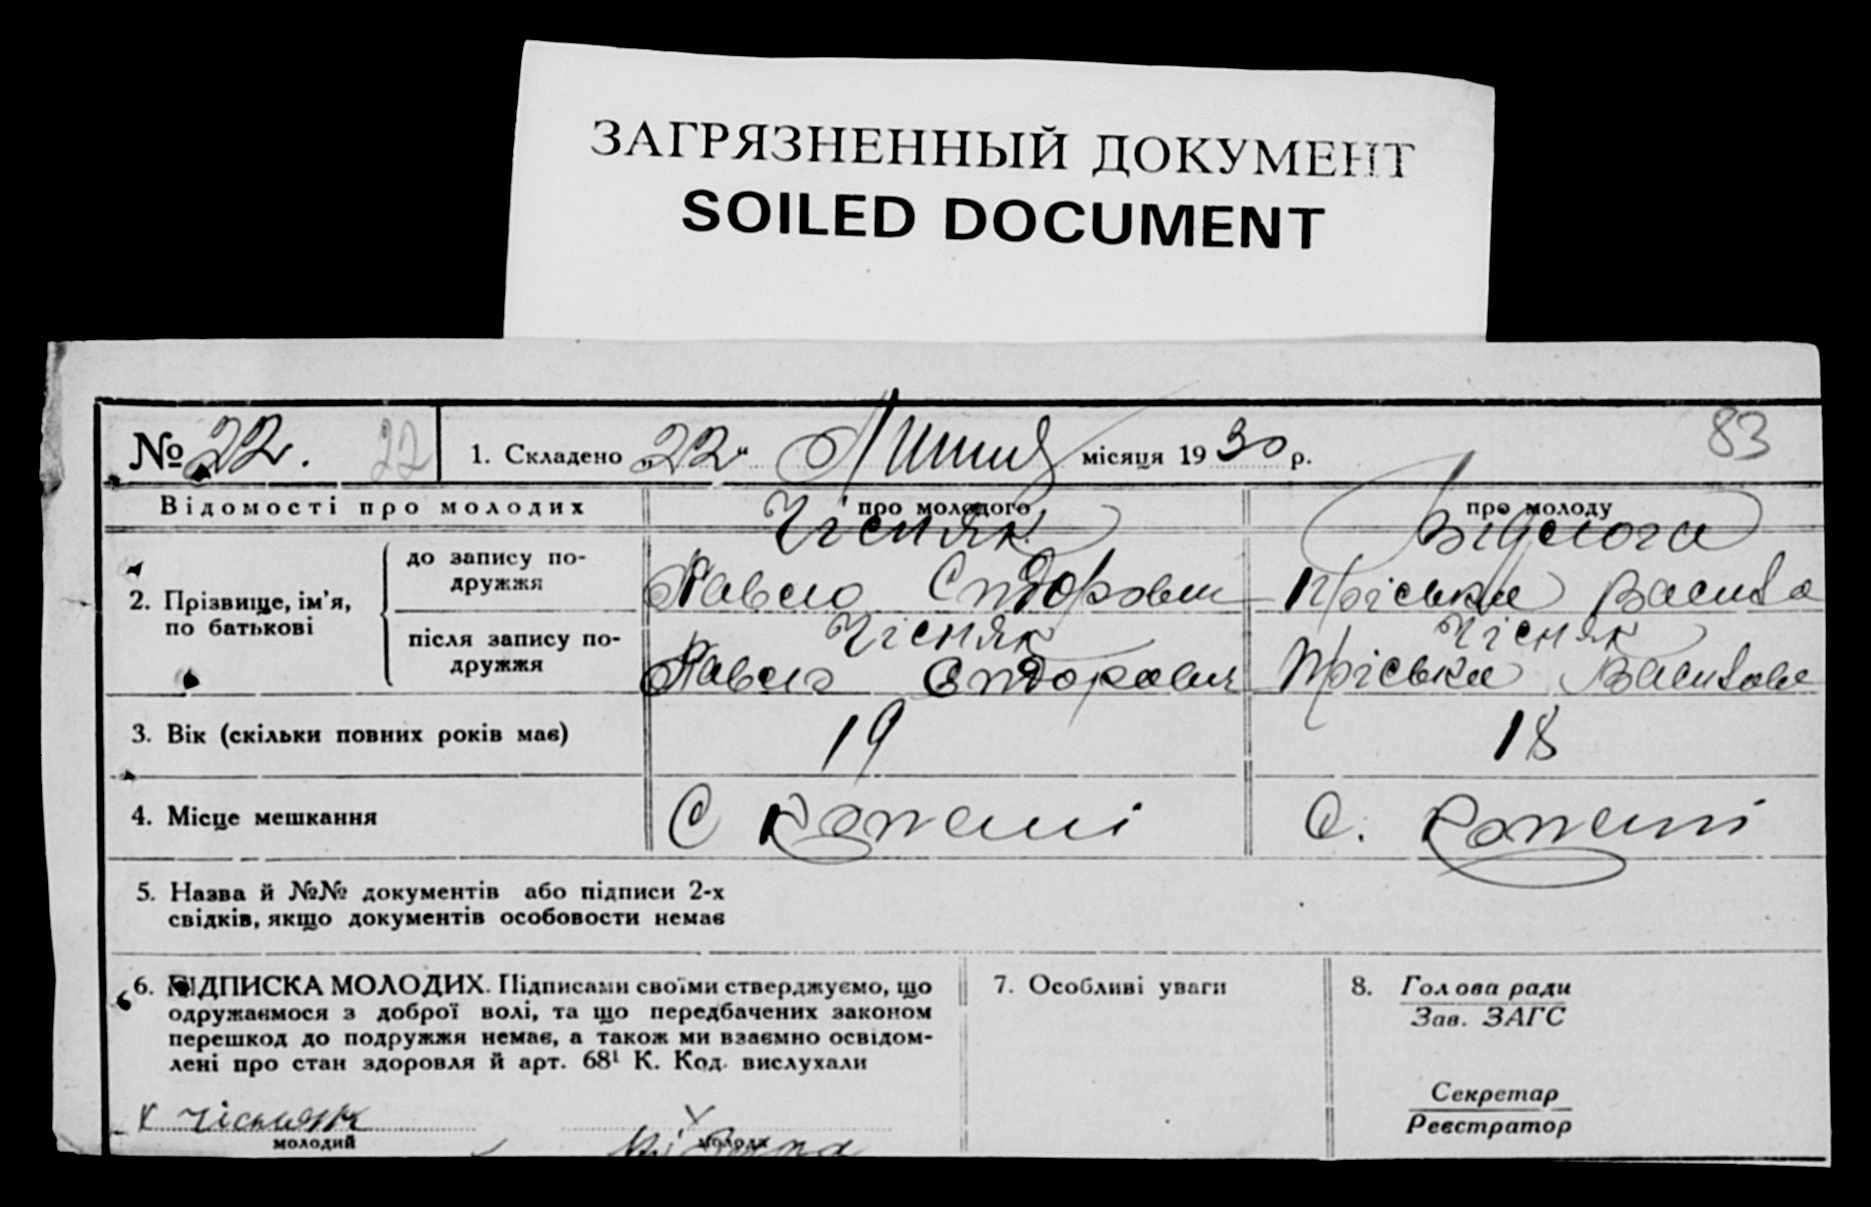 ЗАГРЯЗНЕННЫЙ ДОКУМЕНТ
SOILED DOCUMENT
№ 22. 22
1. Складено „22“ Липня місяця 1930 р.
83
Відомості про молодих
про молодого
про молоду
2. Прізвище, ім'я, по батькові
до запису по-
дружжя
Чісняк
Павло Сидорович
Пріська Васила
після запису по-
дружжя
Чісняк
Павло Сидорович
Чісняк
Пріська Василове
3. Вік (скільки повних років має)
19
18
4. Місце мешкання
С
С.
5. Назва й №№ документів або підписи 2-х
свідків, якщо документів особовости немає
6. ПІДПИСКА МОЛОДИХ. Підписами своїми стверджуємо, що
одружаємося з доброї волі, та що передбачених законом
перешкод до подружжя немає, а також ми взаємно освідом-
лені про стан здоровля й арт. 68¹ К. Код. вислухали
Чісняк
молодий
молода
7. Особливі уваги
8. Голова ради
Зав. ЗАГС
Секретар
Реєстратор